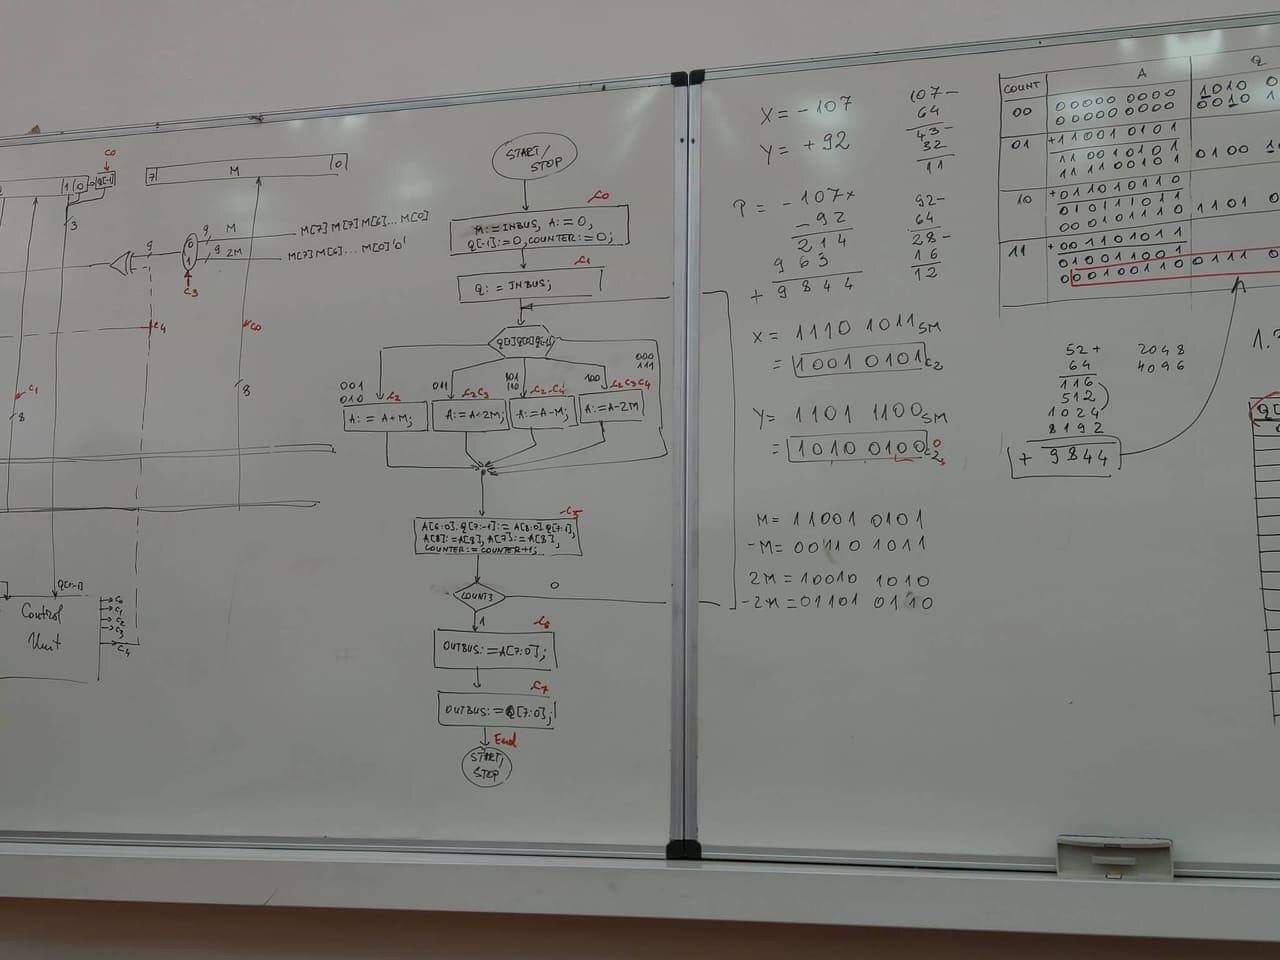 C0
7 M 0
1 0 Q[-1]
3
9
9 M
9 2M
0
1
M[7]M[7]M[6]...M[0]
M[7]M[6]...M[0]'0'
C3
C4
C0
C1
8
8
Q[1:-1]
Control
Unit
C0
C1
C2
C3
C4
START/
STOP
C0
M:=INBUS, A:=0,
Q[-1]:=0, COUNTER:=0;
C1
Q:=INBUS;
Q[1]Q[0]Q[-1]
001
010
C2
011
C2C3
101
110
C2 C4
100
C2C3C4
000
111
A:=A+M;
A:=A+2M;
A:=A-M;
A:=A-2M
C5
A[6:0], Q[7:-1]:=A[8:0]Q[7:1],
A[8]:=A[8], A[7]:=A[8],
COUNTER:=COUNTER+1;
COUNT3
0
1
C6
OUTBUS:=A[7:0];
C7
OUTBUS:=Q[7:0];
End
START/
STOP
X = -107
Y = +92
107-
64
43-
32
11
P = -107×
-92
214
963
+9844
92-
64
28-
16
12
X = 1110 1011SM
= 1001 0101C2
Y = 1101 1100SM
= 1010 0100C2 0
M = 11001 0101
-M = 00110 1011
2M = 10010 1010
-2M = 01101 0110
COUNT A Q
00 00000 0000 1010 0
00000 0000 0010 1
01 +11001 0101
11001 0101
11110 0101 0100 1
10 +01101 0110
01011 1011
00010 1110 1101 0
11 +00110 1011
01001 1001
00010 0110 0111 0
52+
64
116
512
1024
8192
+9844
2048
4096
1.
Q[